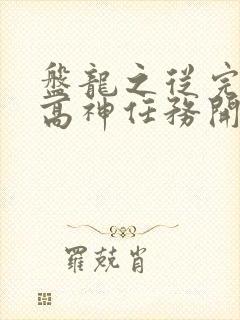 盤龍之從完
高神任務開
羅兢肖